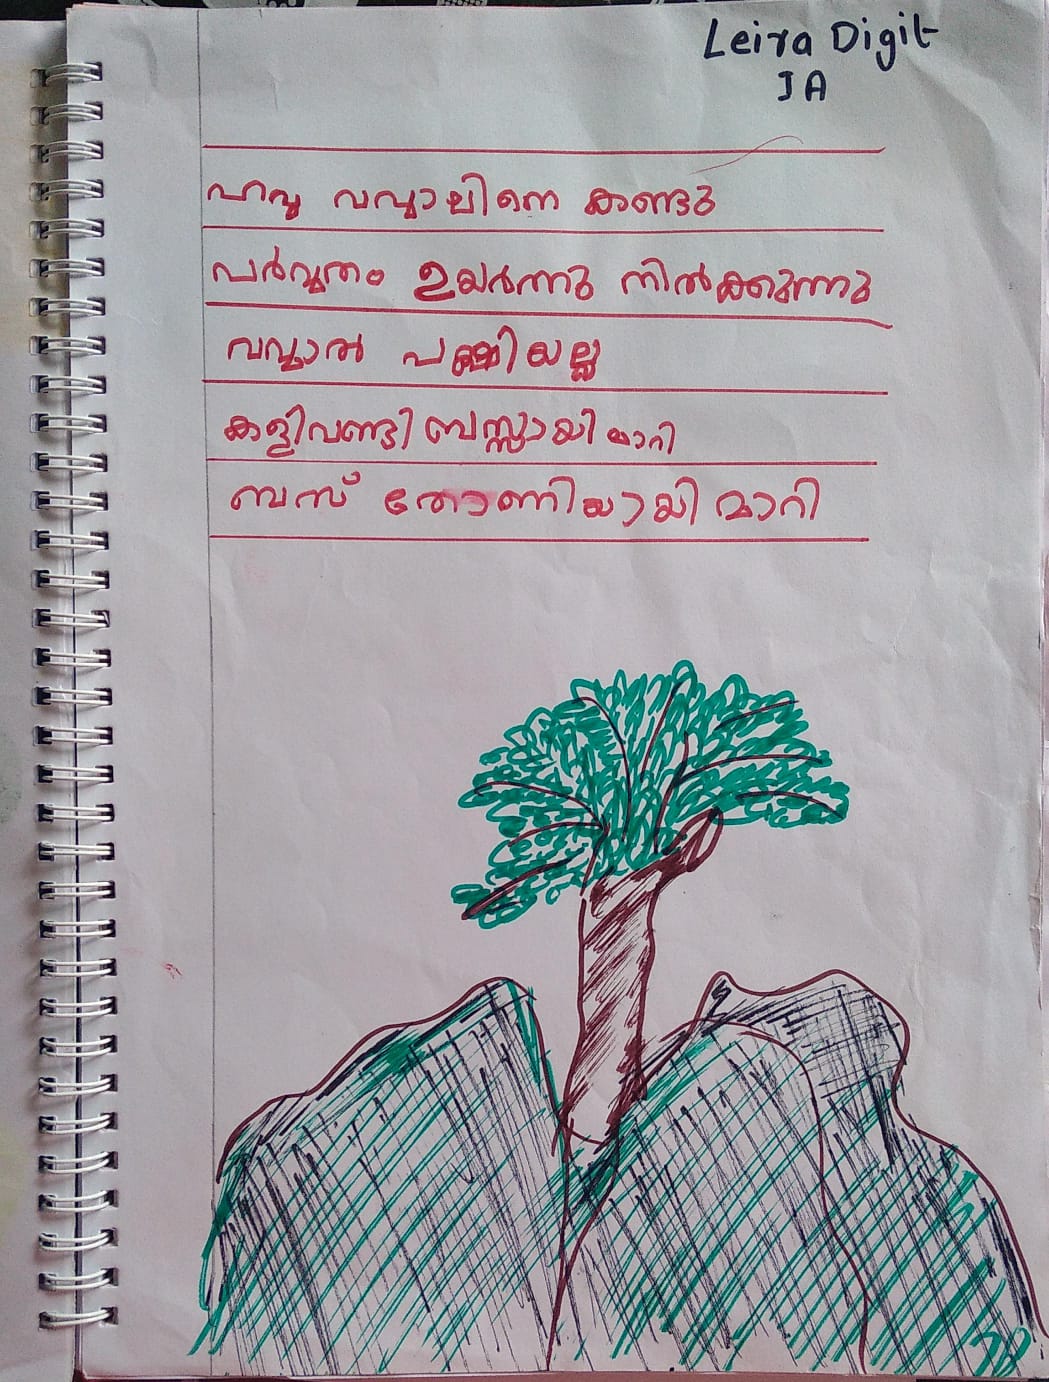 Leira Digit
JA
ഹവ്വ വവ്വാലിനെ കണ്ടു
പർവ്വതം ഉയർന്നു നിൽക്കുന്നു
വവ്വാൽ പക്ഷിയല്ല
കളിവണ്ടി ബസ്സായി മാറി
ബസ് തോണിയായി മാറി